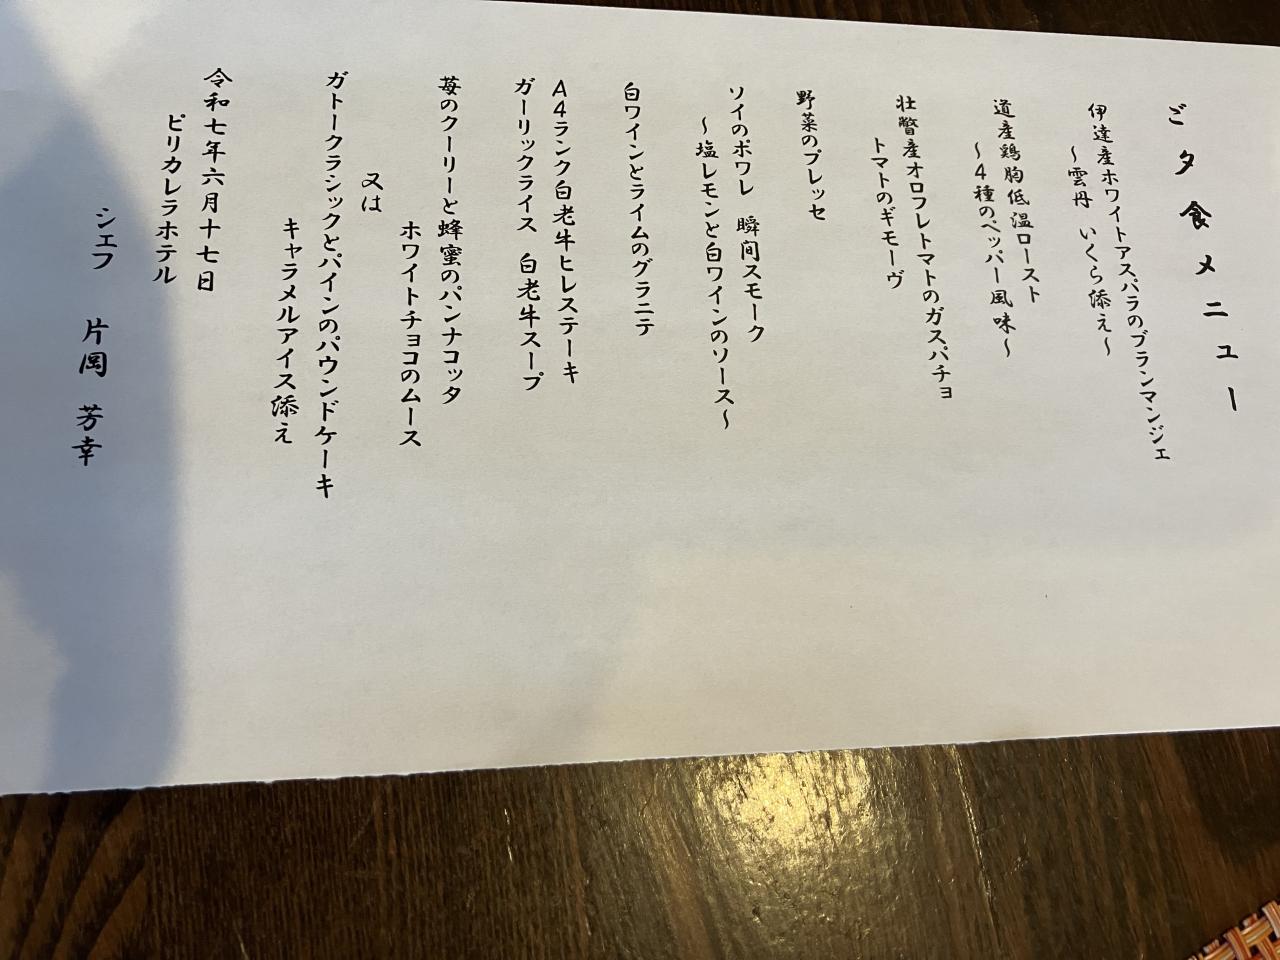 ご夕食メニュー
伊達産ホワイトアスパラのブランマンジェ
～雲丹 いくら添え～
道産鶏胸低温ロースト
～4種のペッパー風味～
壮瞥産オロフレトマトのガスパチョ
トマトのギモーヴ
野菜のプレッセ
ソイのポワレ 瞬間スモーク
～塩レモンと白ワインのソース～
白ワインとライムのグラニテ
A4ランク白老牛ヒレステーキ
ガーリックライス 白老牛スープ
苺のクーリーと蜂蜜のパンナコッタ
ホワイトチョコのムース
又は
ガトークラシックとパインのパウンドケーキ
キャラメルアイス添え
令和七年六月十七日
ピリカレラホテル
シェフ 片岡 芳幸